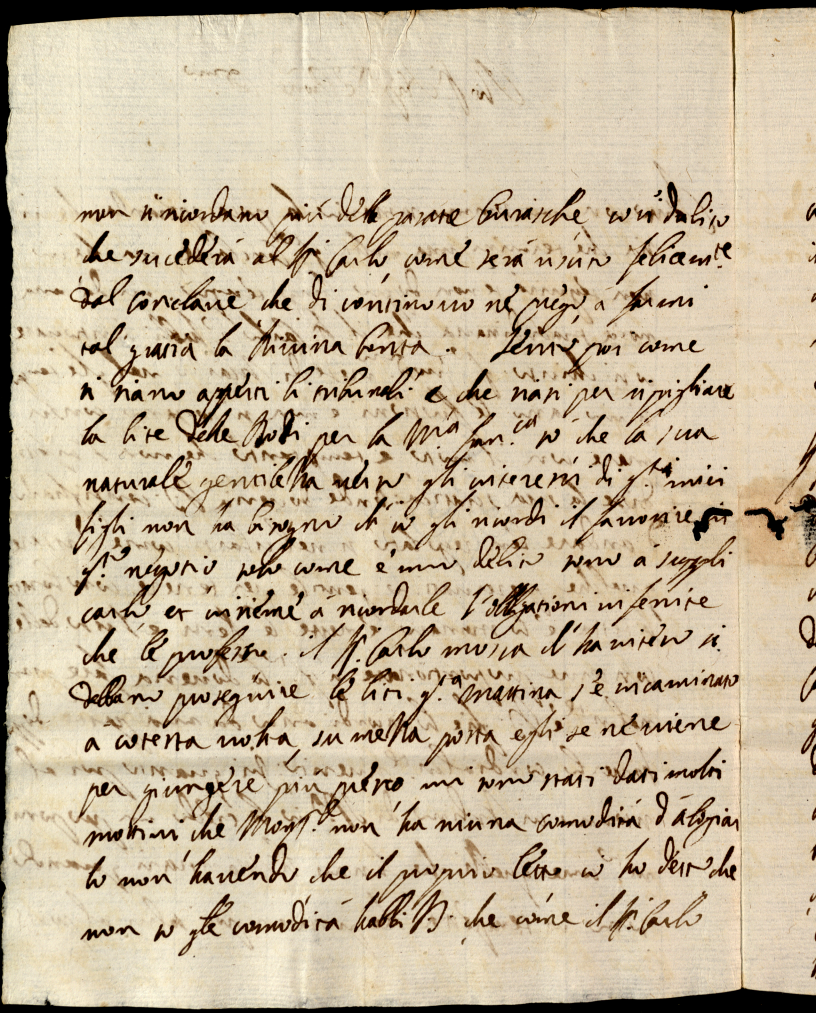 non si ricordano più delle passate burasche, così dalito
che sucederà al Sr Carlo, come serà uscito felicemte
dal conclave che di continouo ne prego, à farmi
tal gratia la Divina bontà. Sento poi come
si siano aperti li tribunali e che siasi per ripigliare
la lite delle per la Mra so che la sua
naturale gentilezza verso gli interessi di qti miei
figli non ha bisogno ch' io gli ricordi il favorire in
qto negotio solo come è mio delito sono à suppli
carlo et insieme à ricordarle l'obligationi infenite
che le professo. il Sr Carlo mosca ch' ha inteso si
debbano proseguire le liti qta mattina s'è incaminato
à cotesta volta, su mezza posta egli se ne viene
per giungere più presto mi sono stati dati molti
mottivi che Monsre non' ha niuna comodità d'alogiar
lo non' havendo che il proprio letto io ho detto che
non so qle comodità habbi che come il Sr Carlo